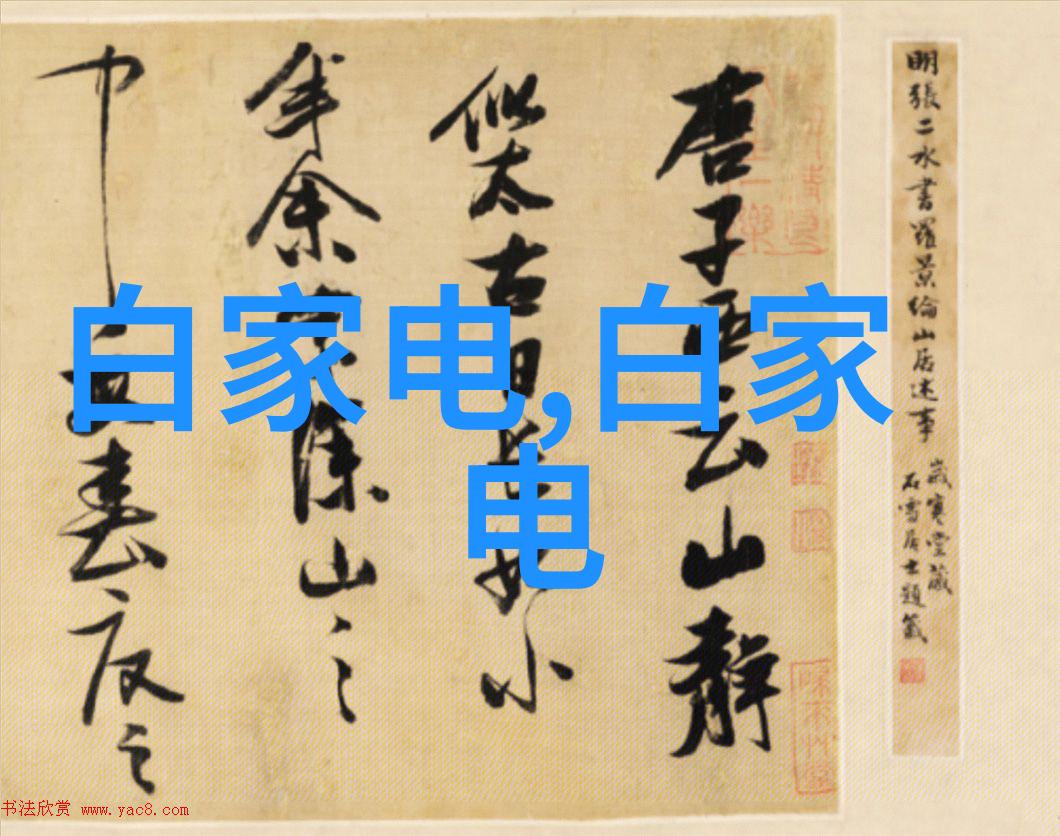 白家电,白家
电
明張二水書羅景綸山居述事
歲寒堂藏
石雪居士題簽
唐子西云山靜
似太古日長如小
年余家深山之
中每春夏之
书法欣赏 www.yac8.com